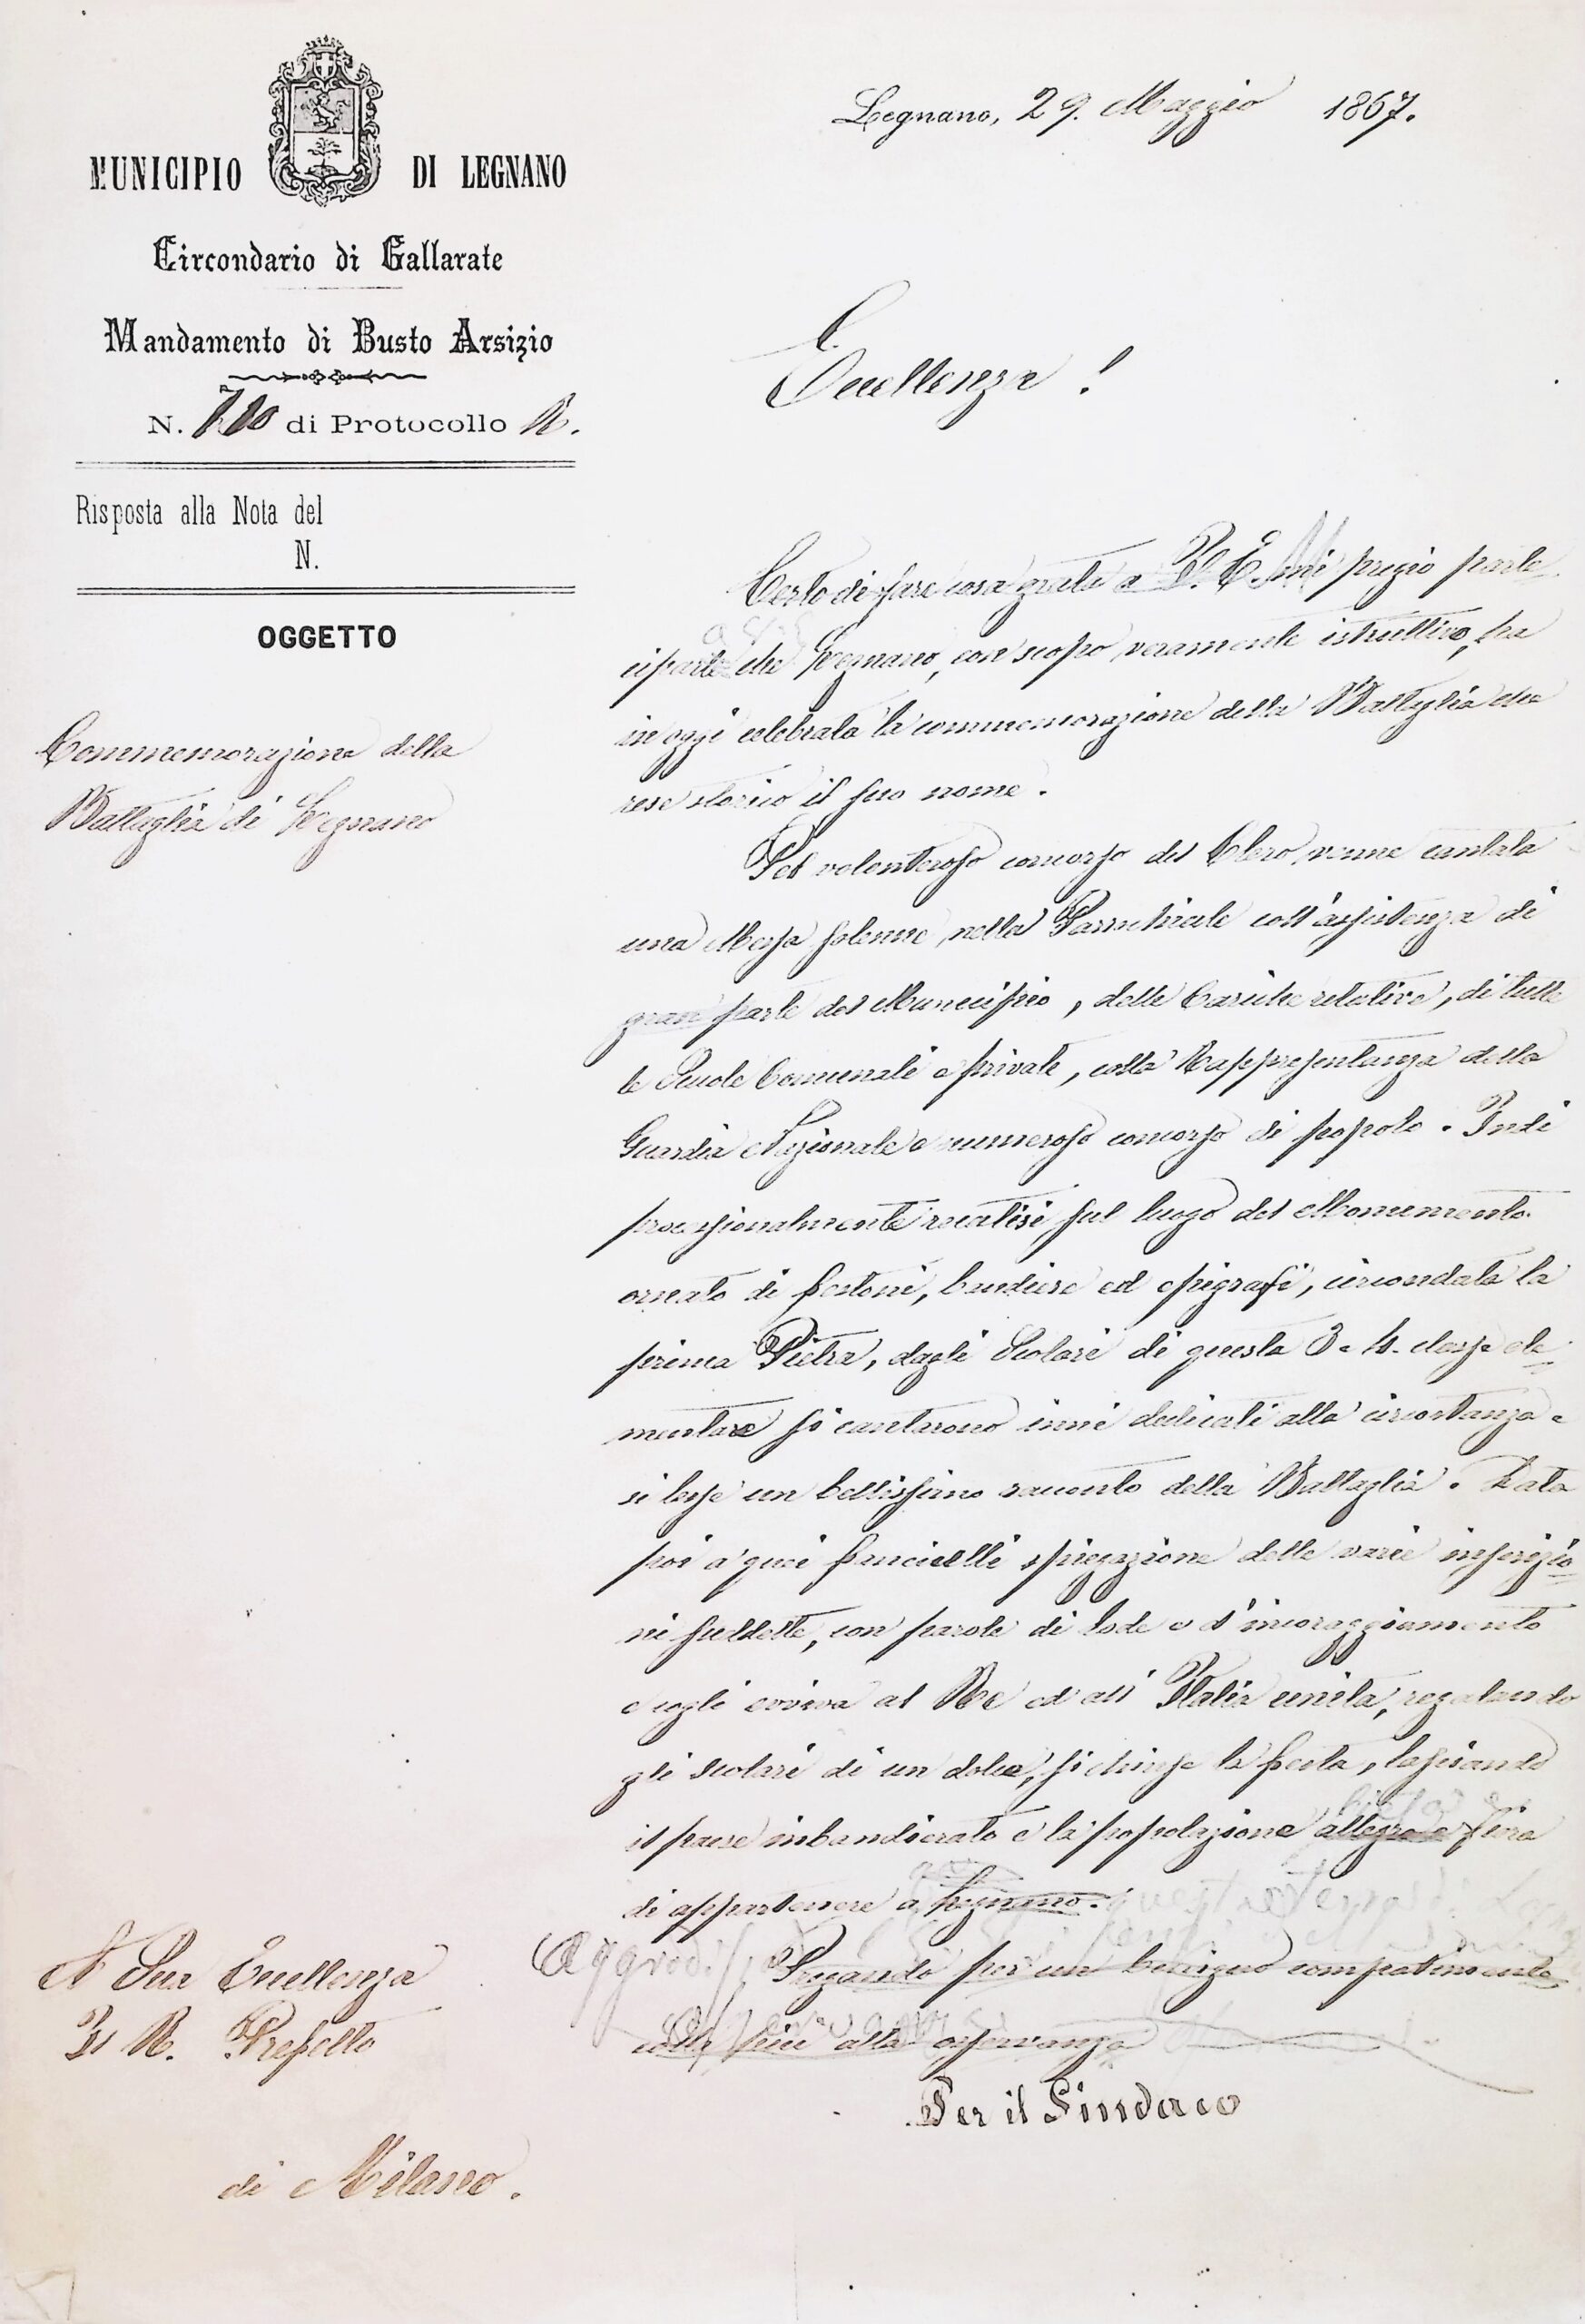 MUNICIPIO DI LEGNANO
Circondario di Gallarate
Mandamento di Busto Arsizio
N. di Protocollo R.
Risposta alla Nota del
N.
OGGETTO
Commemorazione della
Battaglia di Legnano
Legnano, 29. Maggio 1867.
Eccellenza!
Certo di fare cosa grata a V. E. mi pregio parte
ciparle che Legnano, con scopo veramente istruttivo, ha
in oggi celebrata la commemorazione della Battaglia che
rese storico il suo nome.
Pel volonteroso concorso del Clero, venne cantata
una Messa solenne, nella Parrochiale coll'assistenza di
gran parte del Municipio, delle Cariche relative, di tutte
le Scuole Comunali e private, colla Rappresentanza della
Guardia Nazionale e numeroso concorso di popolo. Indi
processionalmente recatisi sul luogo del Monumento
ornato di festoni, bandiere ed epigrafi, circondata la
prima Pietra, dagli Scolari di questa 3. e 4. classe ele-
mentare si cantarono inni dedicati alla circostanza e
si lesse un bellissimo racconto della Battaglia. Data
poi a quei fanciulli spiegazione delle varie inscrizio-
ni suddette, con parole di lode e d'incoraggiamento
e cogli evviva al Re ed all'Italia unita, regalando
gli scolari di un dolce, si chiuse la festa, lasciando
il paese imbandierato e la popolazione allegra e fiera
di appartenere a Legnano.
Pregando per un benigno compatimento
colla alla osservanza
Per il Sindaco
A Sua Eccellenza
Il R. Prefetto
di Milano.